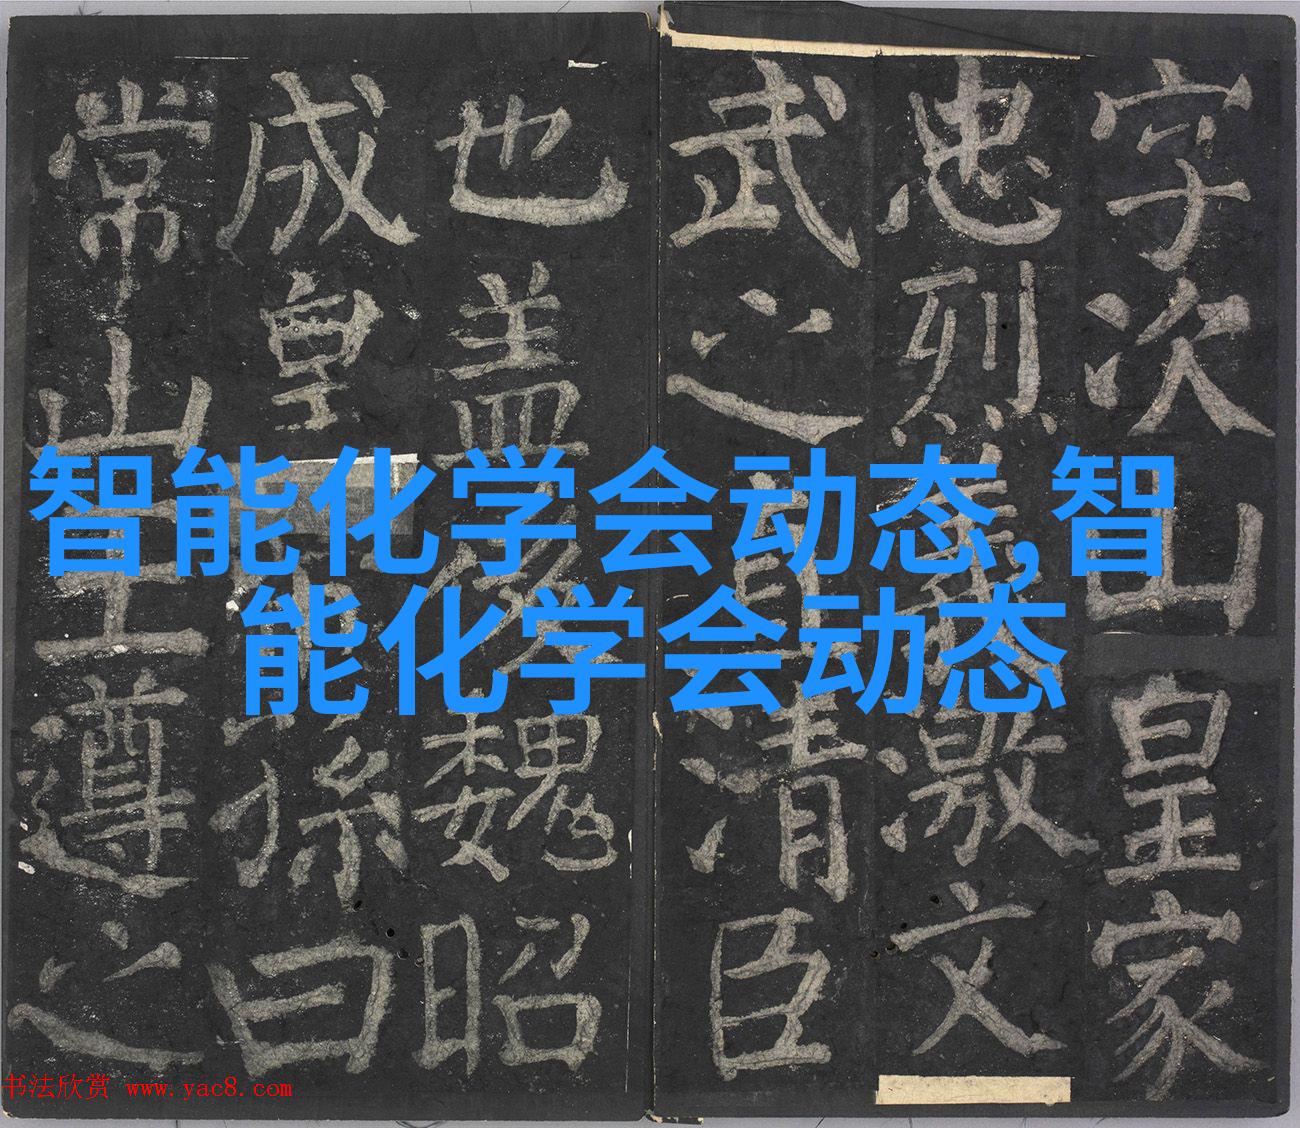 字次山皇家
忠烈義激文
武之直清臣
也盖後魏昭
成皇帝孫曰
常山王遵之
智能化学会动态,智
能化学会动态
书法欣赏 www.yac8.com